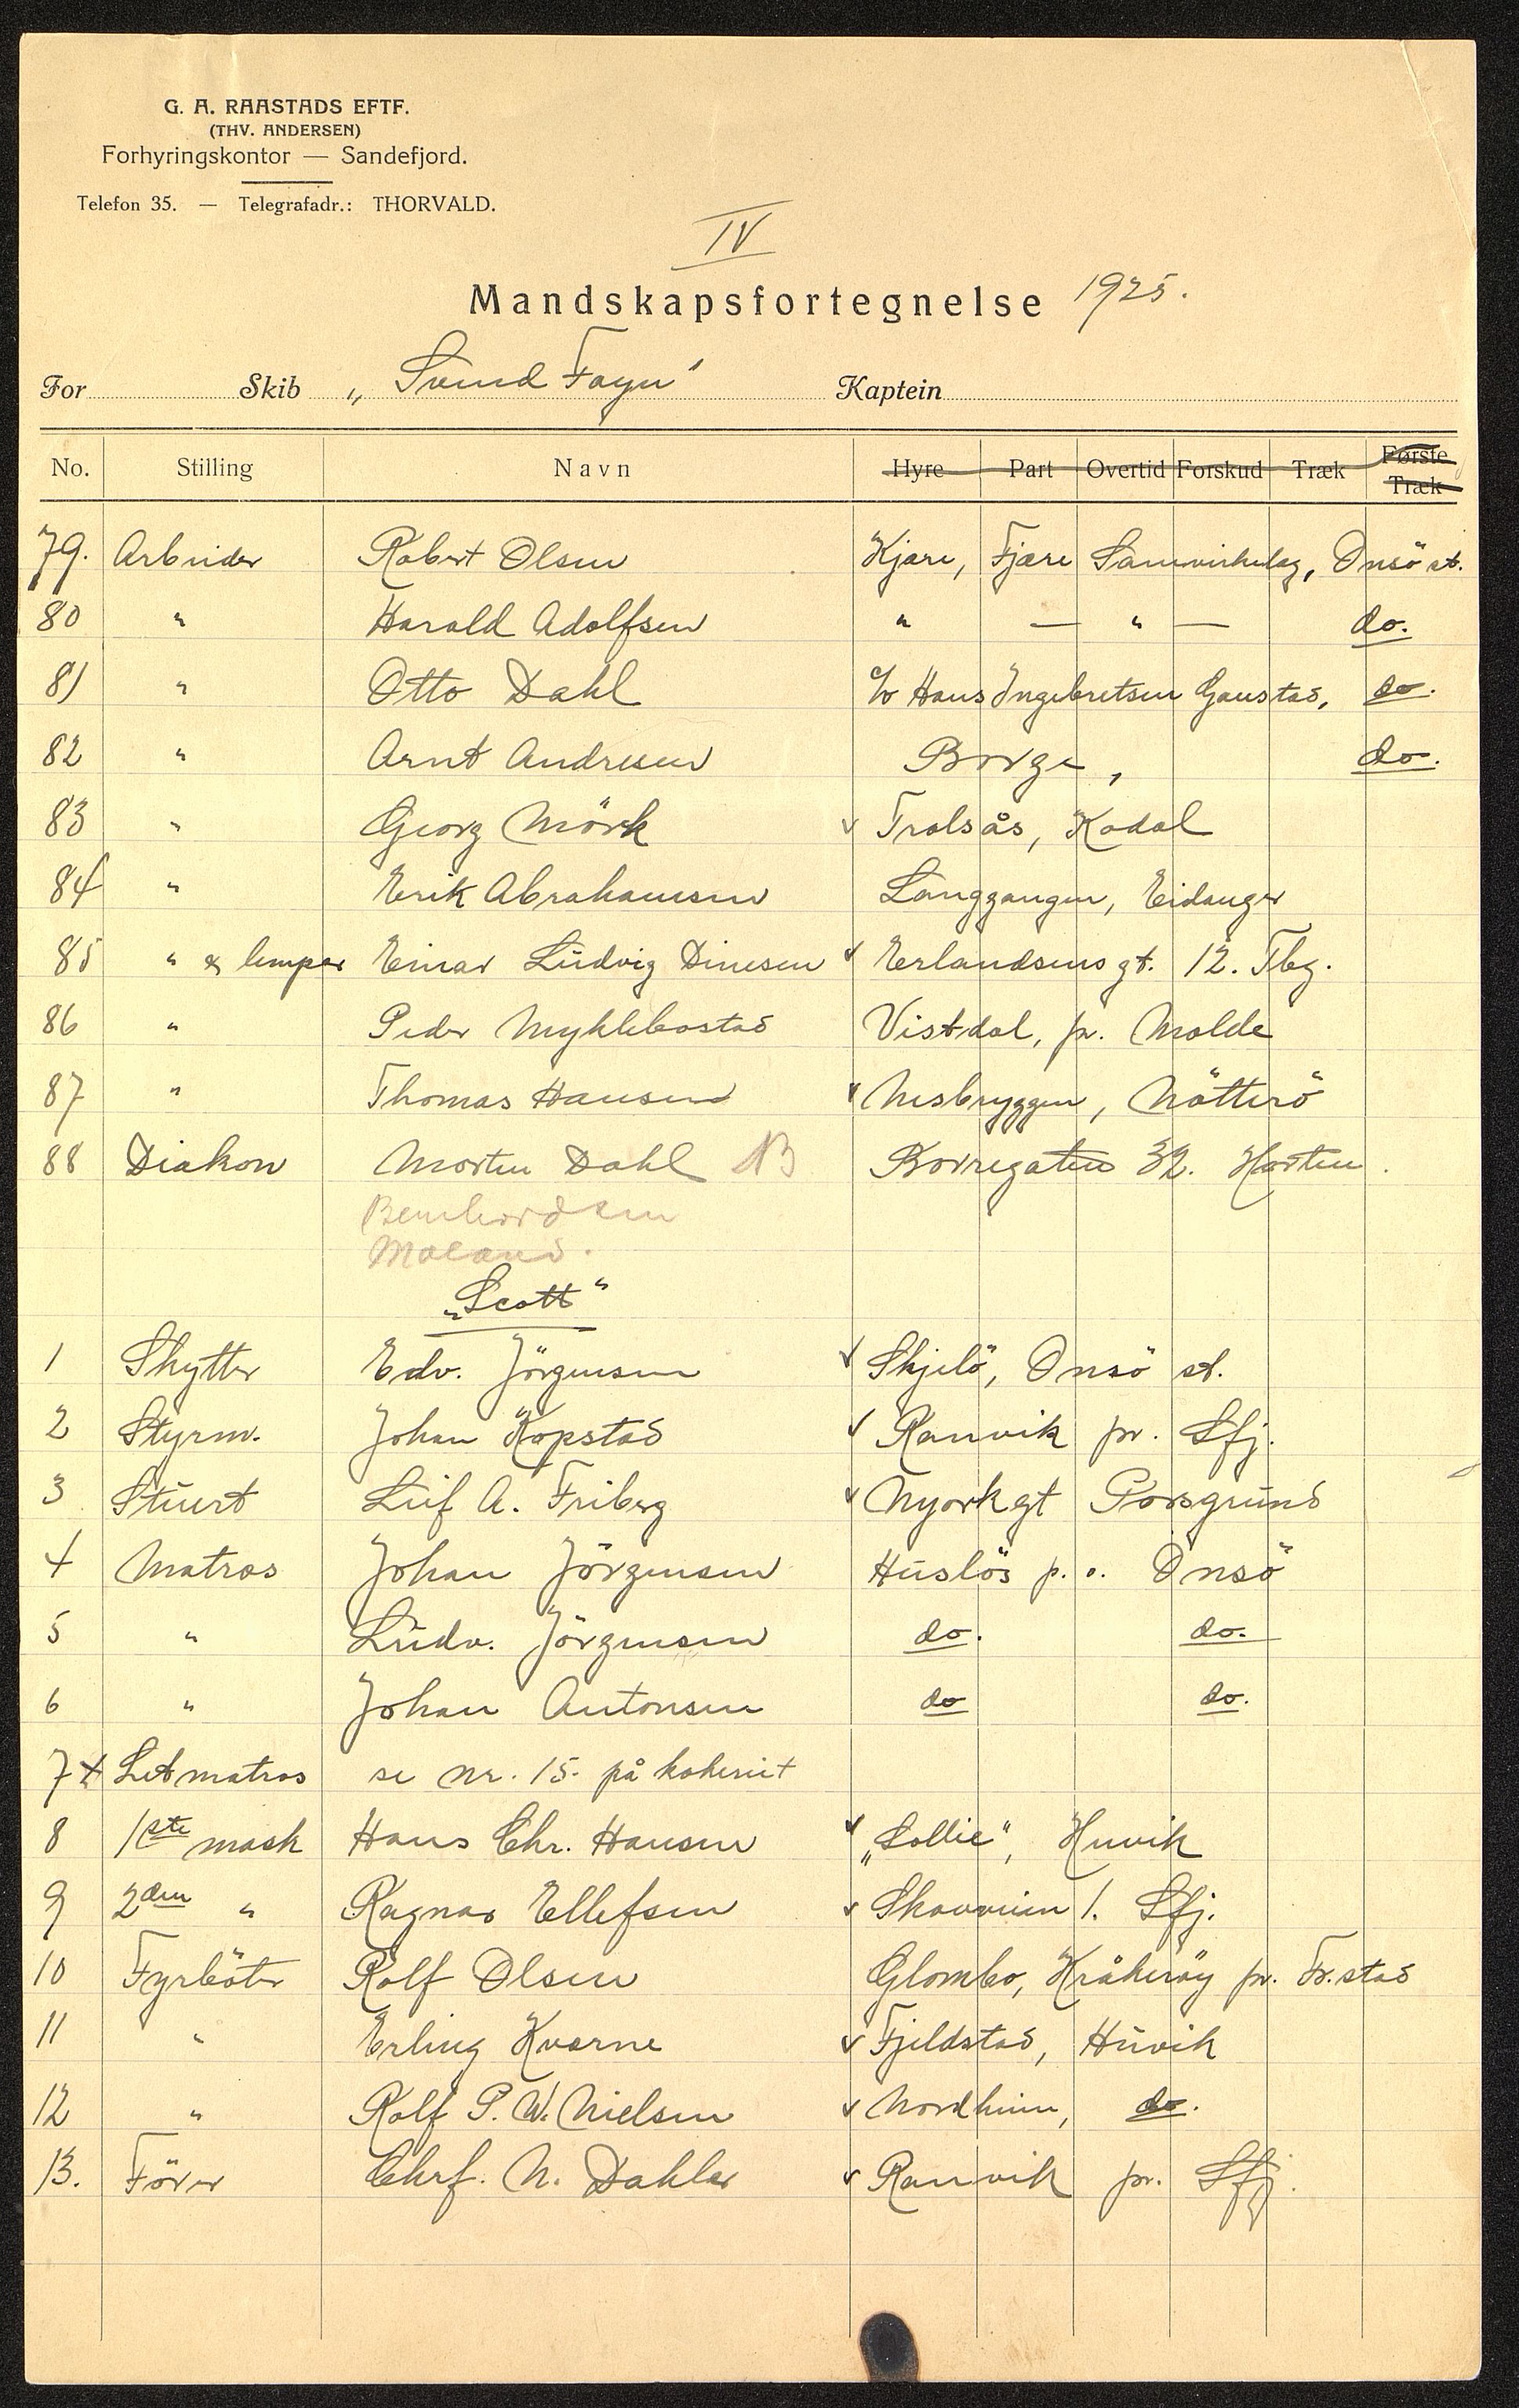 G. A. RAASTADS EFTF.
(THV. ANDERSEN)
Forhyringskontor — Sandefjord.
Telefon 35. — Telegrafadr.: THORVALD.
IV
Mandskapsfortegnelse 1925.
For Skib „Svend Foyn" Kaptein
No. Stilling Navn Hyre Part Overtid Forskud Træk Første Træk
79. Arbeider Robert Olsen Kjære, Fjære Samvirkelag, Onsö st.
80 " Harald Adolfsen " — " — do.
81 " Otto Dahl c/o Hans Ingebretsen Gaustad, do.
82 " Arnt Andresen Borge, do.
83 " Georg Mörk v Trolsås, Kodal
84 " Erik Abrahamsen Langgangen, Eidanger
85 " & lemper Einar Ludvig Dinesen v Erlandsens gt. 12. Tbg.
86 " Peder Myklebostad Vistdal, pr. Molde
87 " Thomas Hansen v Nesbryggen, Nötterö
88 Diakon Morten Dahl Borregaten 32. Horten.
Bernhardsen
Moland.
„Scott"
1 Skytter Edv. Jörgensen v Skjelö, Onsö st.
2 Styrm. Johan Kopstad v Ranvik pr. Sfj.
3 Stuert Leif A. Friberg v Nyorkgt Porsgrund
4 Matros Johan Jörgensen Huslös p. o. Onsö
5 " Ludv. Jörgensen do. do.
6 " Johan Antonsen do do.
7 x Letmatros se nr. 15. på kokeriet
8 1ste mask Hans Chr. Hansen v „Sollie", Huvik
9 2den " Ragnar Ellefsen v Skovveien 1. Sfj.
10 Fyrböter Rolf Olsen Glombo, Kråkeröy pr. Fr.stad
11 " Erling Kverne v Fjeldstad, Huvik
12 " Rolf P. W. Nielsen v Nordheim, do.
13. Förer Chrf. N. Dahler v Ranvik pr. Sfj.